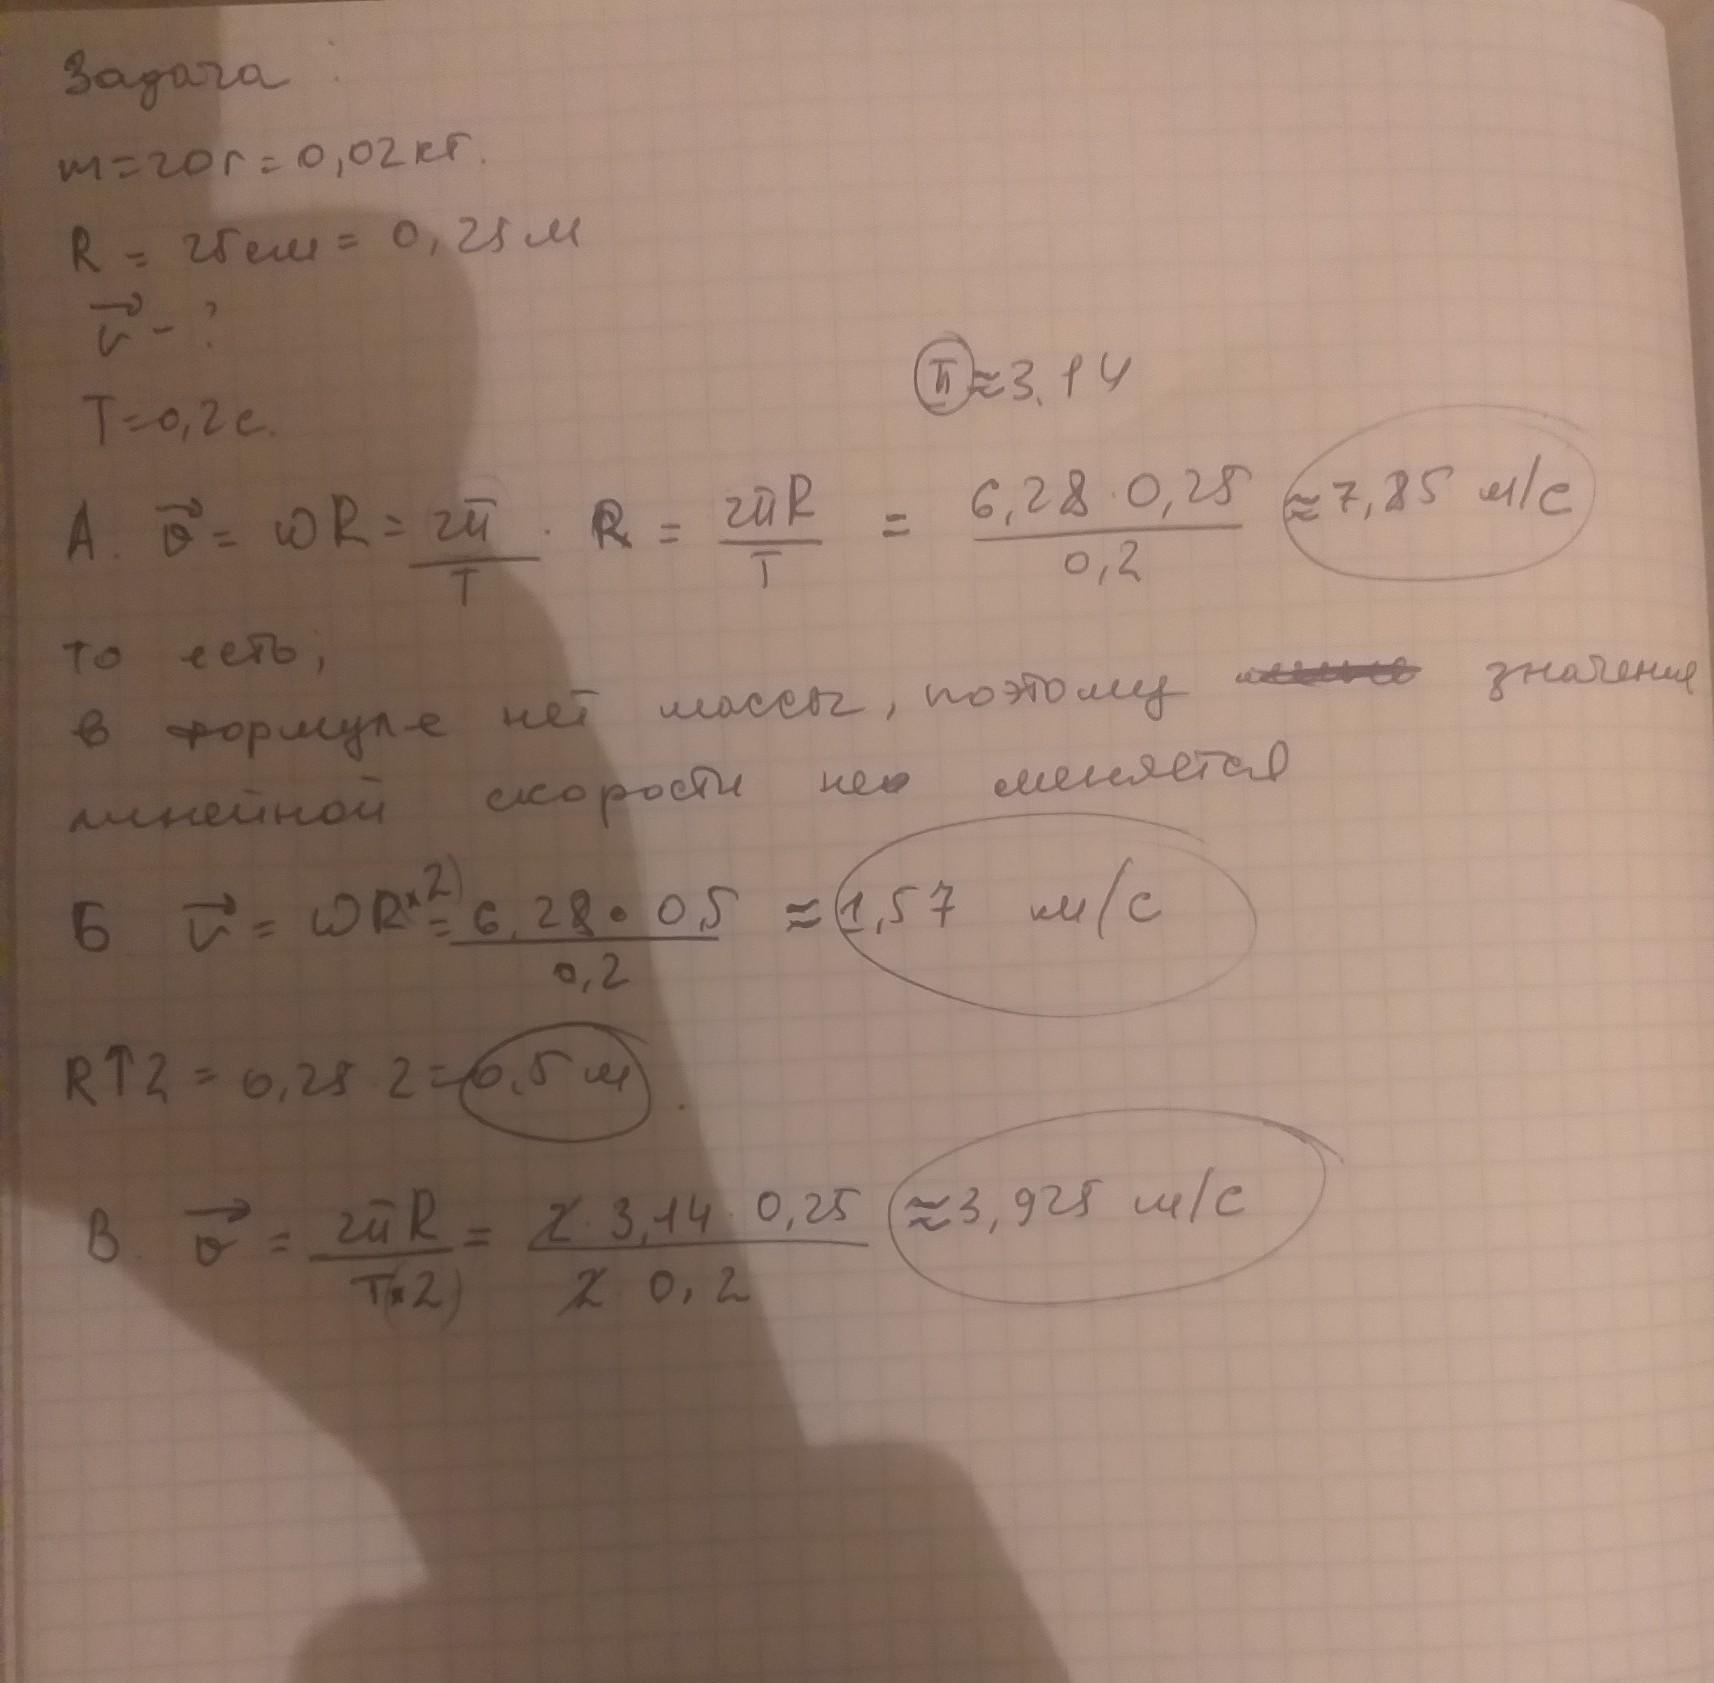 Задача
m=20г=0,02кг.
R = 25см = 0,25м
v⃗ - ?
T=0,2с.
π≈3.14
А. v⃗ = ωR = 2π/T · R = 2πR/T = 6,28·0,25/0,2 ≈7,85 м/с
то есть,
в формуле нет массы, поэтому значение
линейной скорости не меняется
Б v⃗ = ωR×2) = 6,28·0,5/0,2 ≈ 1,57 м/с
R↑2 = 0,25·2=0,5м.
В. v⃗ = 2πR/T(×2) = 2·3,14·0,25/2·0,2 ≈3,925 м/с